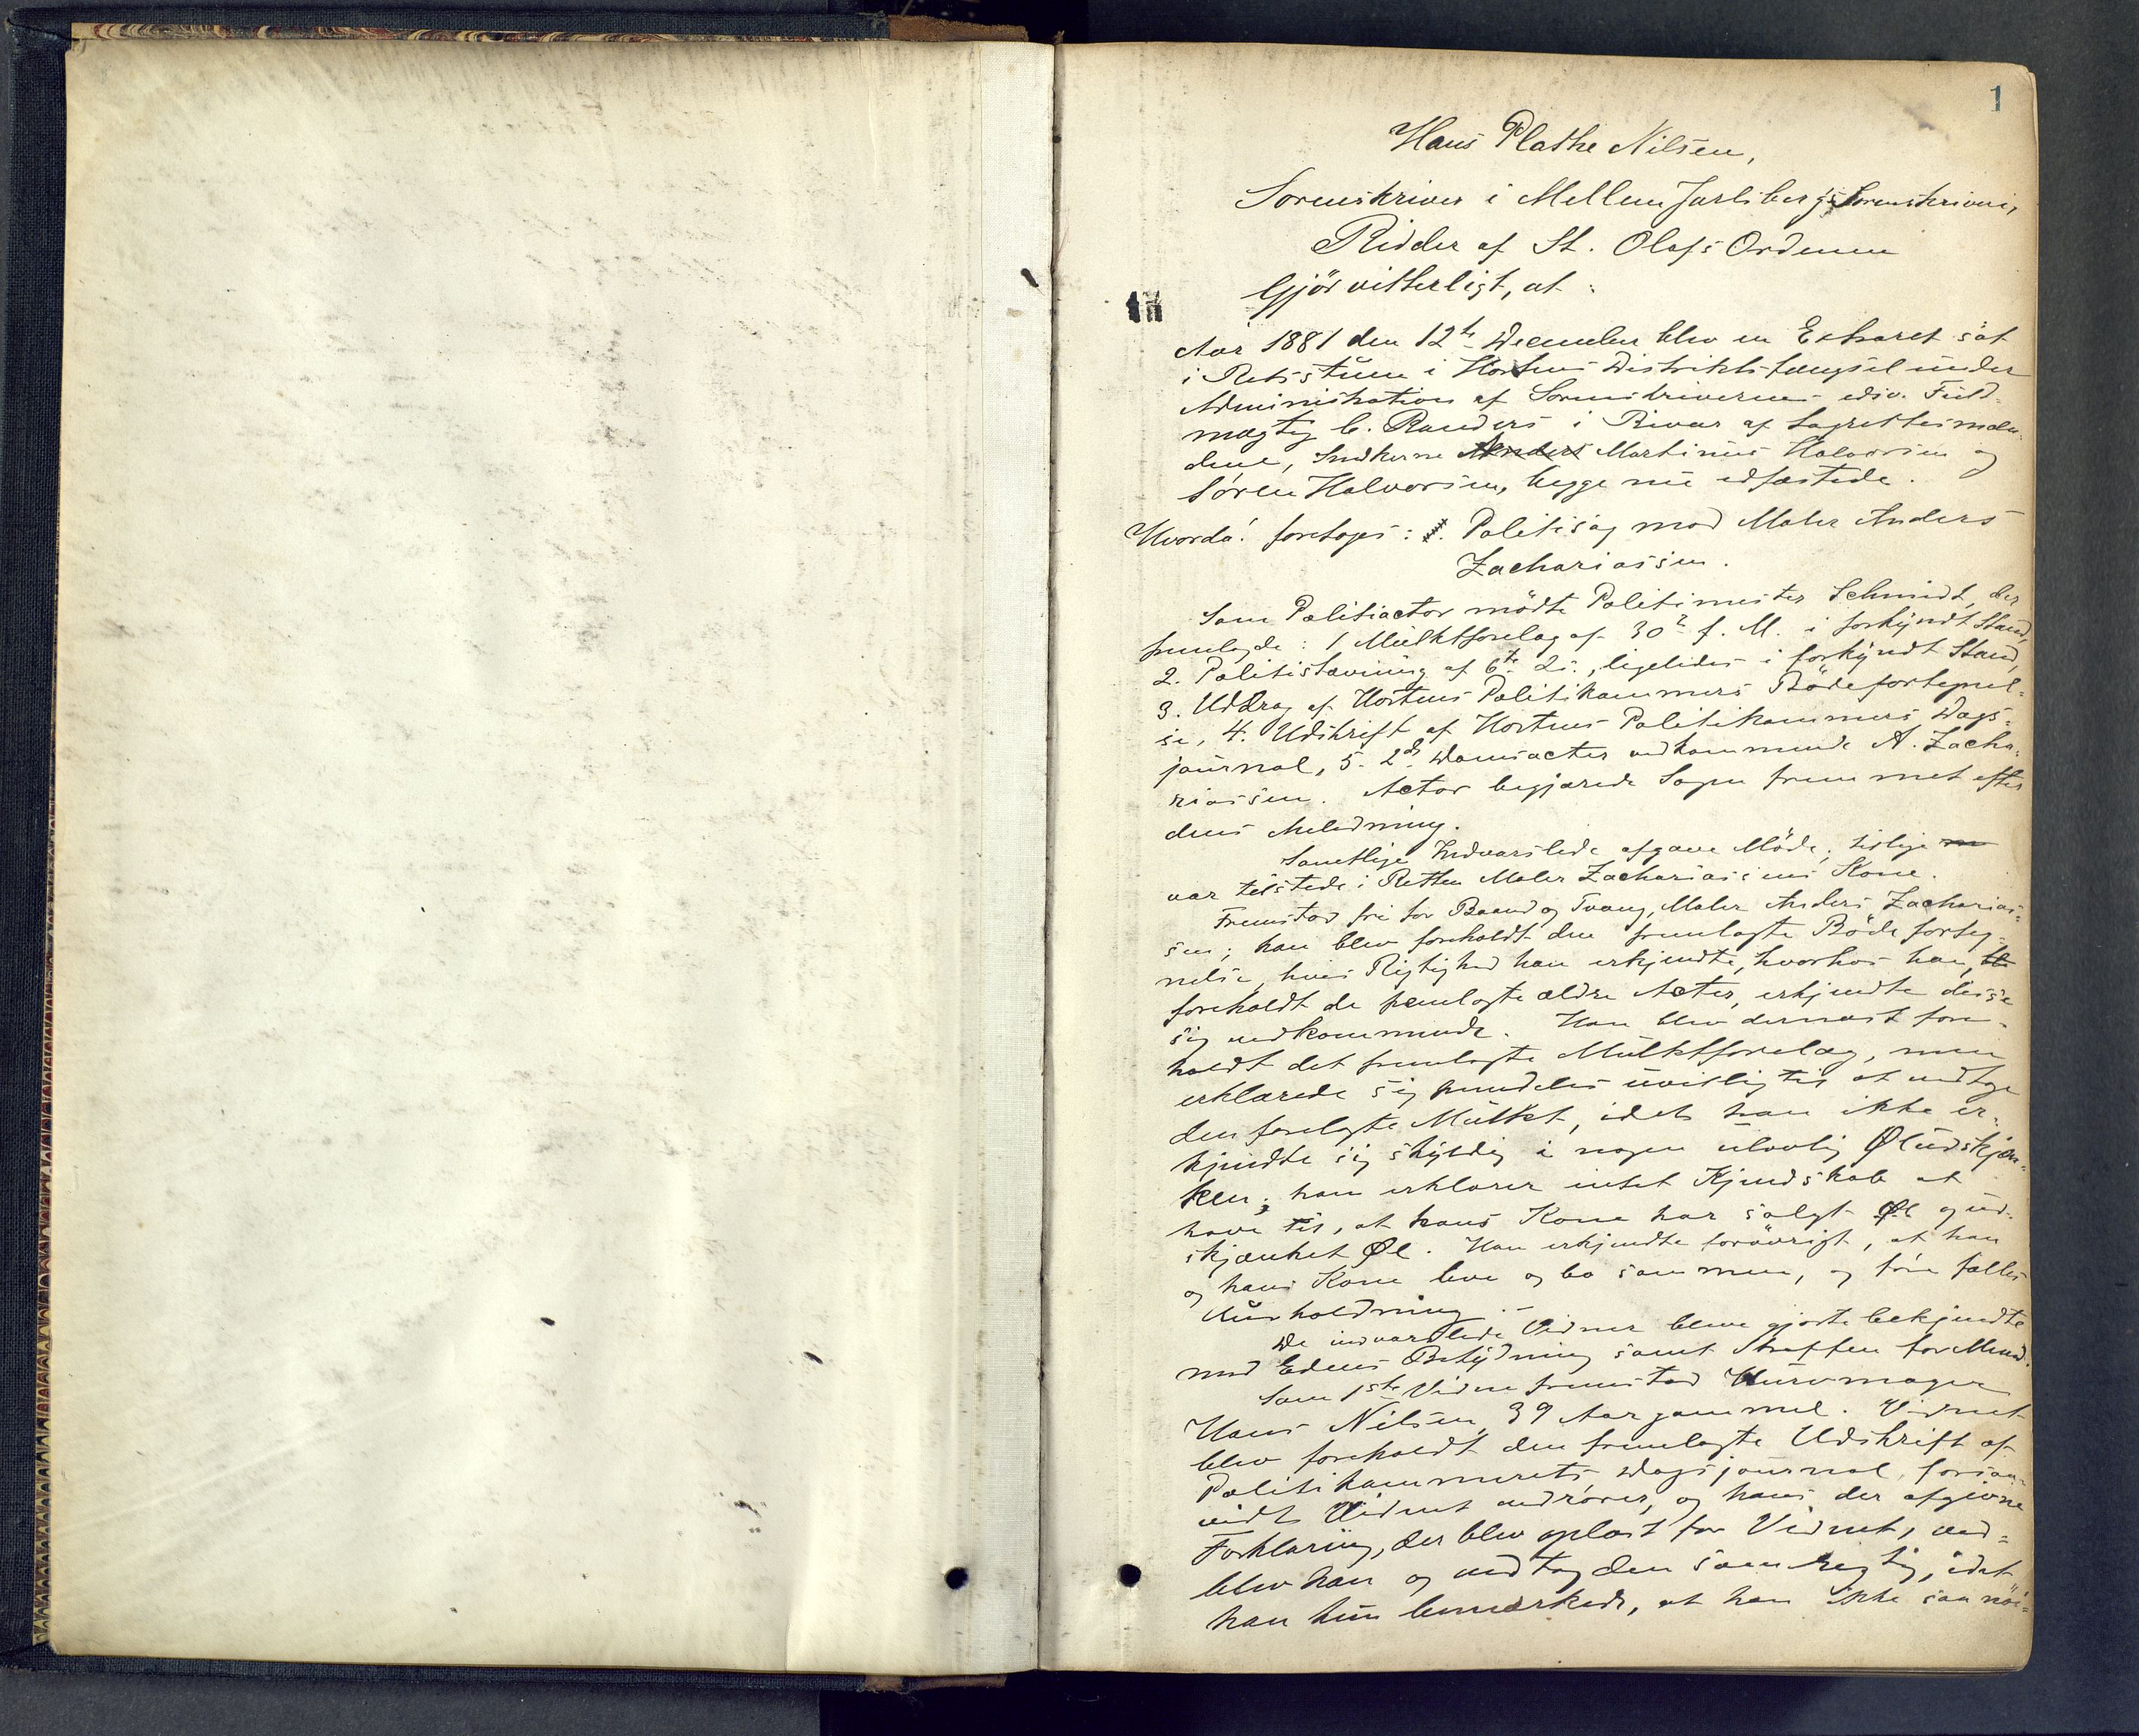 1
Hans Plathe Nilsen,
Sorenskriver i Mellem Jarlsbergs Sorenskriveri,
Ridder af St. Olafs Ordenen
Gjör vitterligt, at:
Aar 1881 den 12te December blev en Extraret sat
i Retsstuen i Hortens Distriktsfængsel under
Administration af Sorenskriverens edsv. Fuld-
mægtig C. Randers i Bivær af Lagrettesmæn-
dene, Snedkerne Anders Martinius Halvorsen og
Sören Halvorsen, begge nu edfæstede.
Hvorda! foretoges: 1. Politisag mod Maler Anders
Zachariassen.
Som Politiactor mödte Politimester Schmidt, der
fremlagde: 1 Mulktforelæg af 30te f. M. i forkyndt Stand,
2. Politistævning af 6te ds., ligeledes i forkyndt Stand,
3. Uddrag af Hortens Politikammers Bödefortegnel-
se, 4. Udskrift af Hortens Politikammers Dags-
journal, 5. 2de Domsacter vedkommende A. Zacha-
riassen. Actor begjærede Sagen fremmet efter
dens Anledning.
Samtlige Indvarslede afgave Möde, tillige
var tilstede i Retten Maler Zachariassens Kone.
Fremstod fri for Baand og Tvang, Maler Anders Zacharias-
sen; han blev foreholdt den fremlagte Bödeforteg-
nelse, hvis Rigtighed han erkjendte, hvorhos han,
foreholdt de fremlagte ældre Acter, erkjendte disse
sig vedkommende. Han blev dernæst fore-
holdt det fremlagte Mulktforelæg, men
erklærede sig fremdeles uvillig til at vedtage
den forelagte Mulkt, idet han ikke er-
kjendte sig skyldig i nogen ulovlig Øludskjæn-
ken; han erklærer intet Kjendskab at
have til, at hans Kone har solgt Øl og ud-
skjænket Øl. Han erkjendte forövrigt, at han
og hans Kone leve og bo sammen, og före fælles
Husholdning.-
De indvarslede Vidner bleve gjorte bekjendte
med Edens Betydning samt Straffen for Mened.
Som 1ste Vidne fremstod Kurvmager
Hans Nilsen, 39 Aar gammel. Vidnet
blev foreholdt den fremlagte Udskrift af
Politikammerets Dagsjournal, forsaa-
vidt Vidnet vedrörer, og hans der afgivne
Forklaring, der blev oplæst for Vidnet, ved-
blev han og vedtog den som rigtig, idet
han kun bemærkede, at han ikke saa nöi-